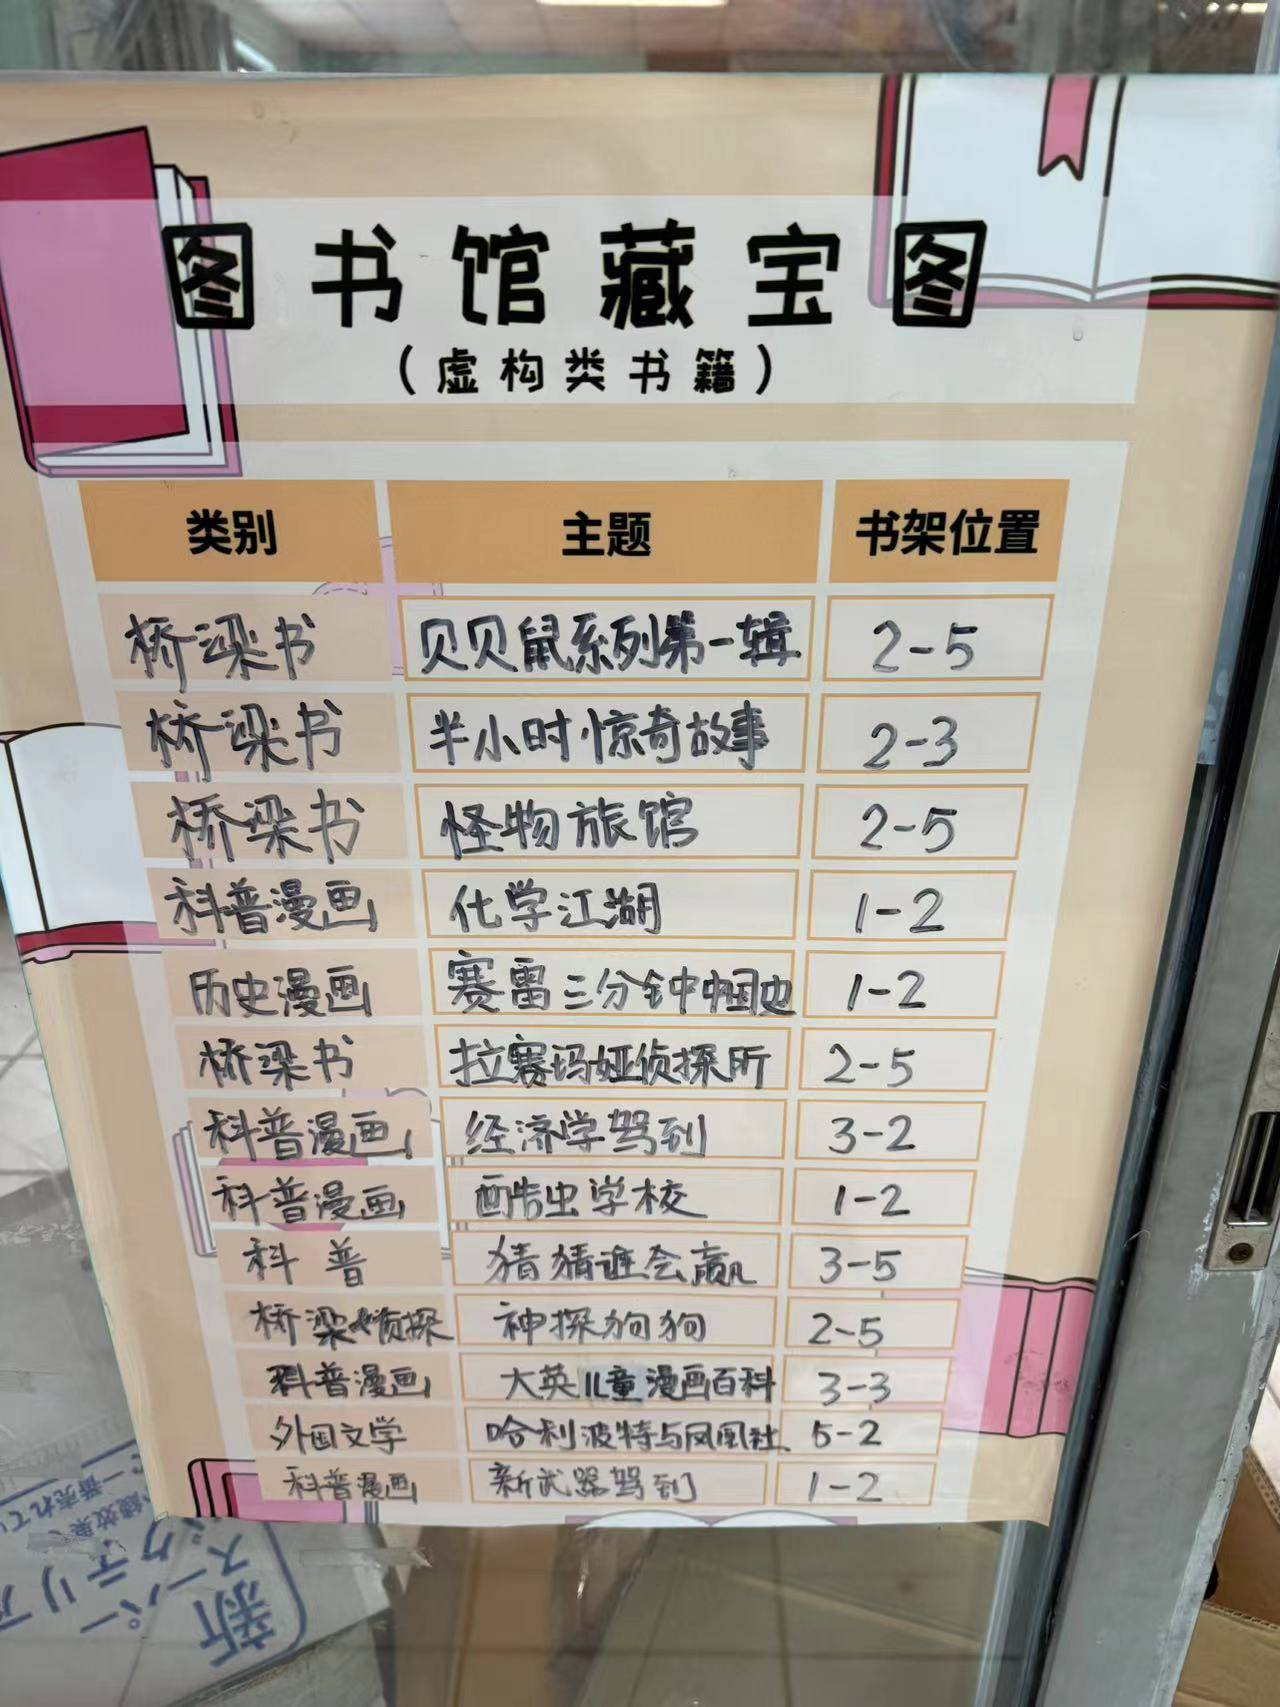 图书馆藏宝图
（虚构类书籍）
类别 主题 书架位置
桥梁书 贝贝鼠系列第一辑 2-5
桥梁书 半小时惊奇故事 2-3
桥梁书 怪物旅馆 2-5
科普漫画 化学江湖 1-2
历史漫画 赛雷三分钟中国史 1-2
桥梁书 拉赛玛娅侦探所 2-5
科普漫画 经济学驾到 3-2
科普漫画 酷虫学校 1-2
科普 猜猜谁会赢 3-5
桥梁侦探 神探狗狗 2-5
科普漫画 大英儿童漫画百科 3-3
外国文学 哈利波特与凤凰社 5-2
科普漫画 新武器驾到 1-2